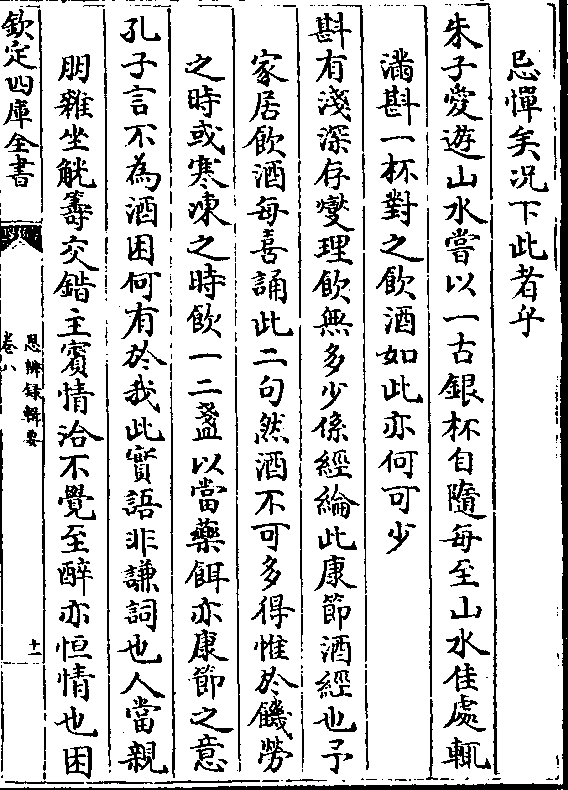 忌憚矣况下此者乎
朱子愛遊山水嘗以一古銀杯自隨每至山水佳處輒
滿斟一杯對之飲酒如此亦何可少
斟有淺深存燮理飲無多少係經綸此康節酒經也予
家居飲酒每喜誦此二句然酒不可多得惟於饑勞
之時或寒凍之時飲一二盞以當藥餌亦康節之意
孔子言不為酒困何有於我此實語非謙詞也人當親
朋雜坐觥籌交錯主賓情洽不覺至醉亦恒情也困
欽定四庫全書
思辨録輯要
卷八
十一